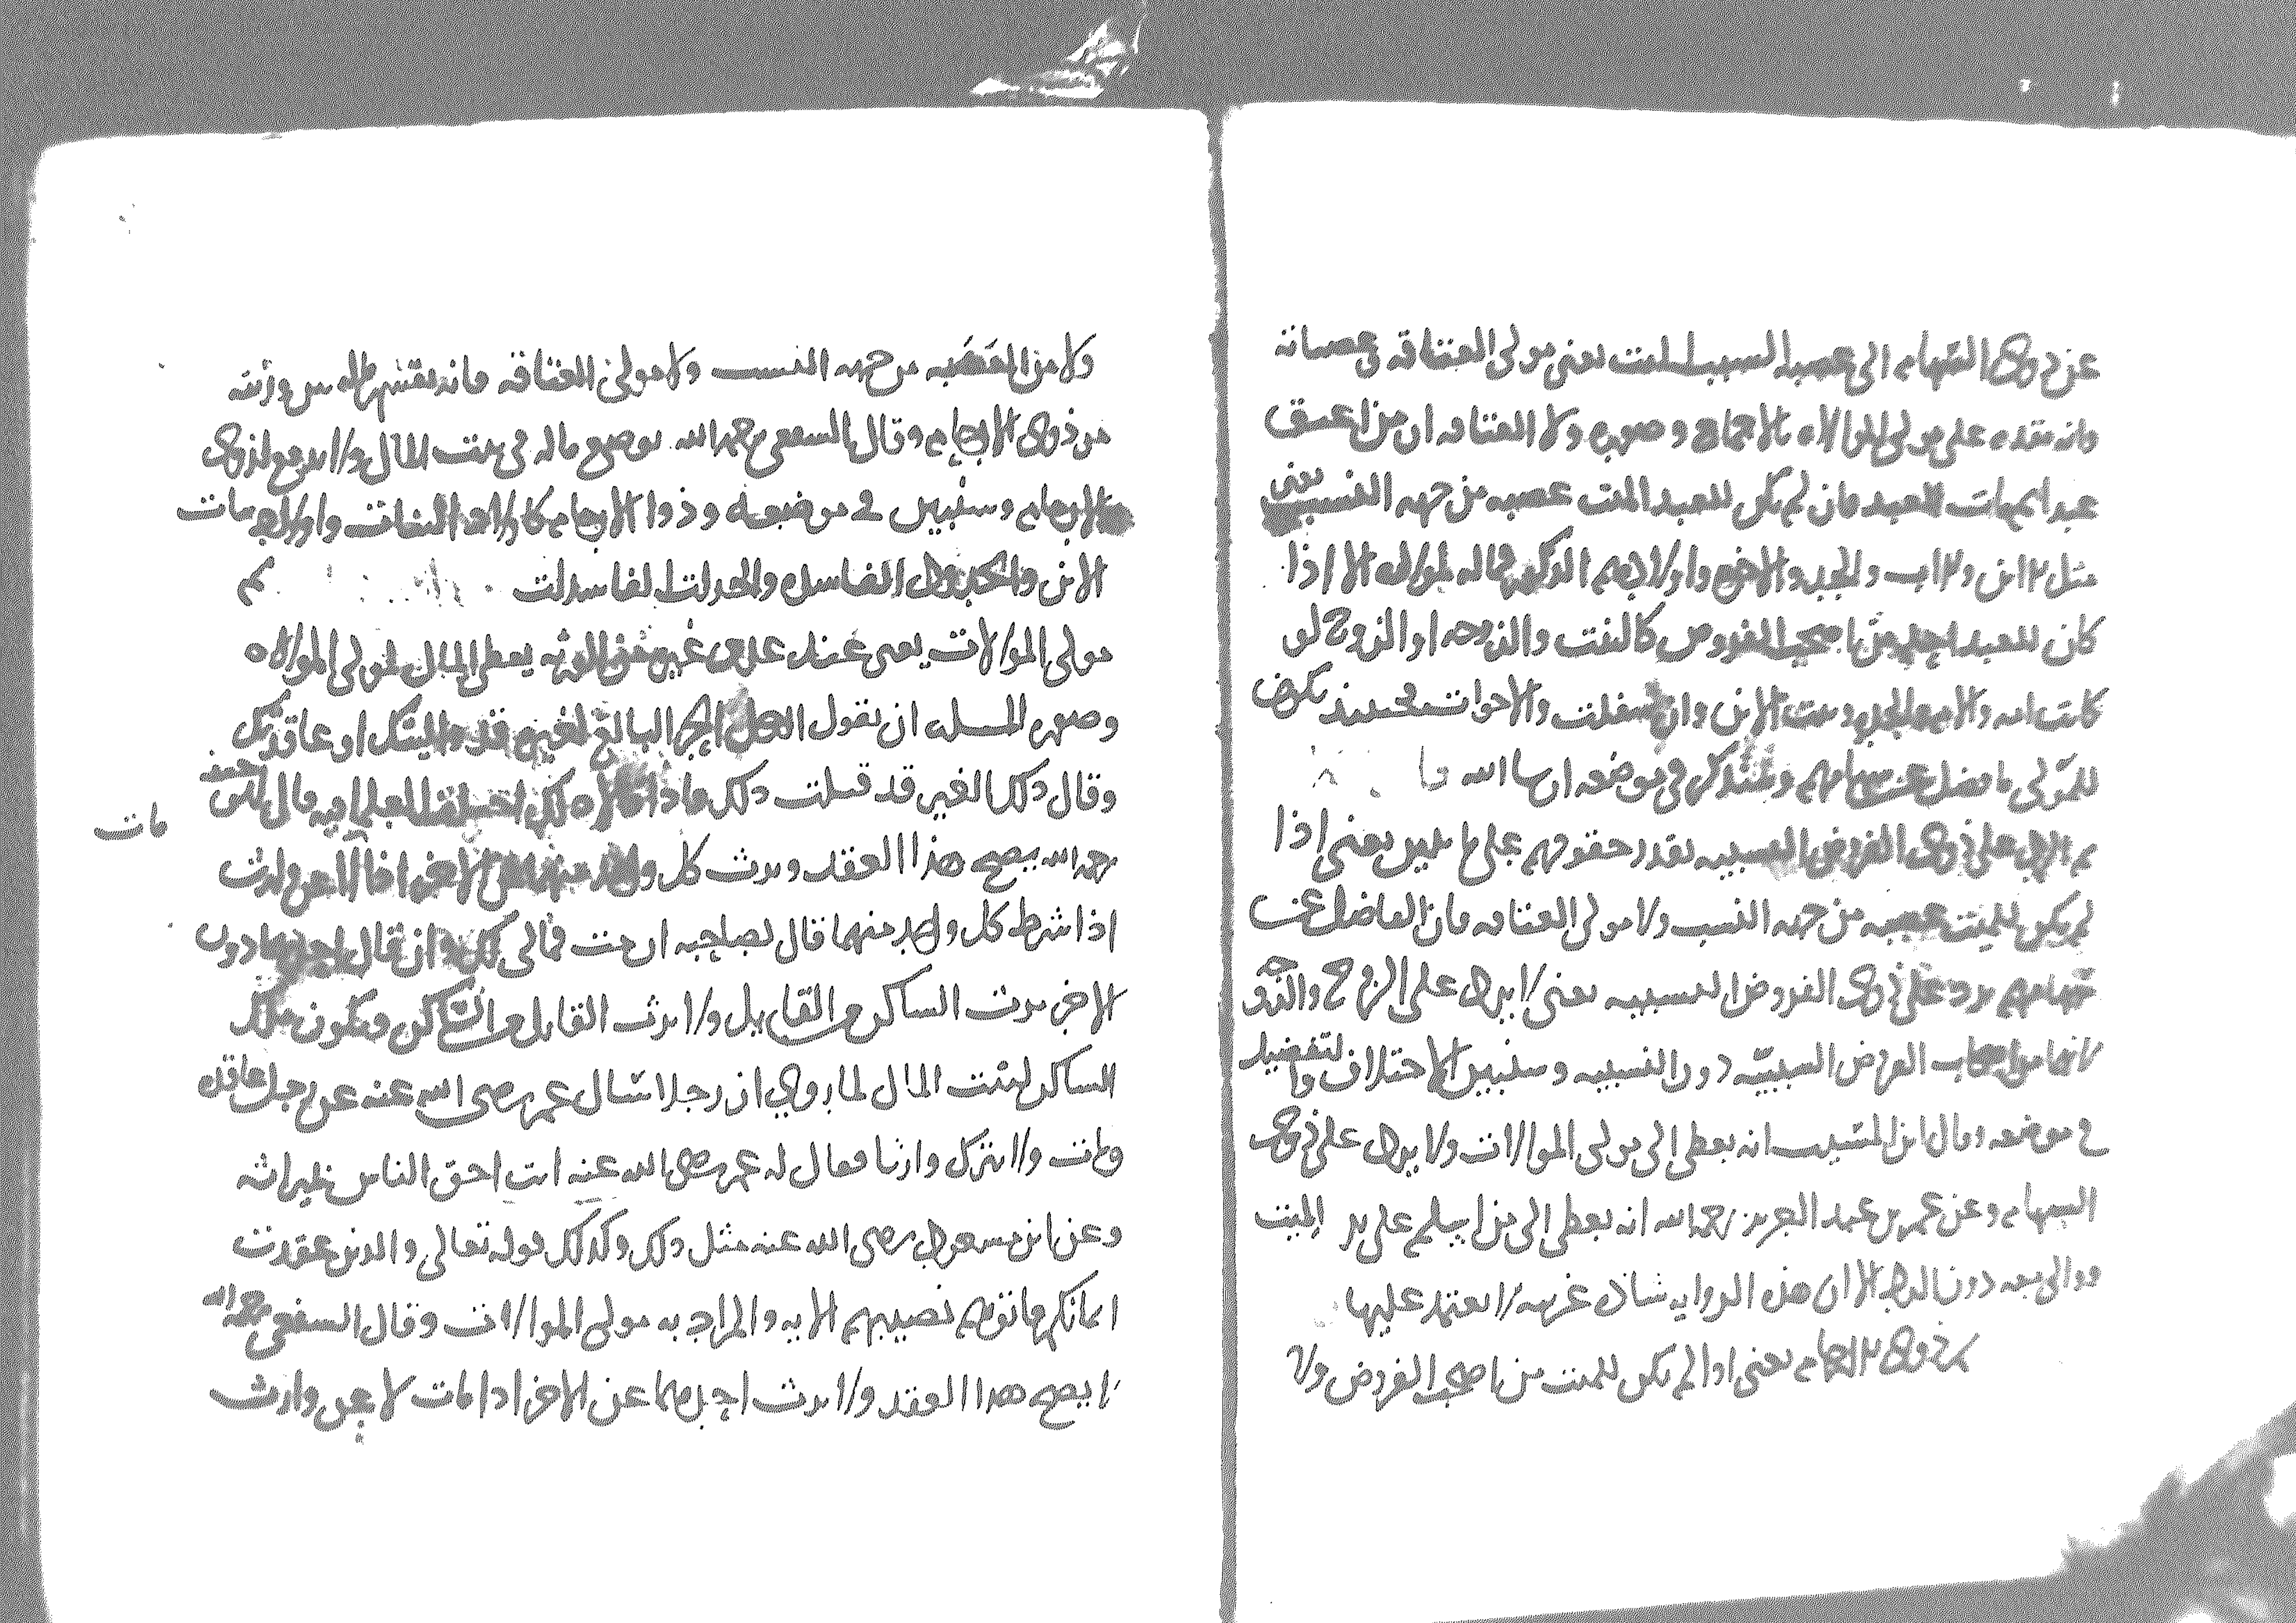 عن ذوي السهام الى عصبه السبب للميت يعني مولى العتاقه وعصباته
فانه مقدم على مولى الموالاه بالاجماع وصوره ولا العتاقه ان من اعتق
عبدا ثم مات العبد فان لم يكن للعبد الميت عصبه من جهه النسب يعني
مثل الابن والاب والجد والاخ واولادهم الذكور فماله لمولاه الا اذا
كان للعبد احد من اصحاب الفروض كالبنت والزوجه او الزوج لو
كانت امه والام والجده وبنت الابن وان سفلت والاخوات فحينئذ يكون
للمولى ما فضل عن سهامهم وسنذكر في موضعه ان شا الله
ثم الرد على ذوي الفروض النسبيه بقدر حقوقهم على ما يبين يعني اذا
لم يكن للميت عصبه من جهه النسب ولا مولى العتاقه فان الفاضل عن
سهامهم يرد على ذوي الفروض النسبيه يعني لا يرد على الزوج والزوجه
لانهما من اصحاب الفرض السببيه دون النسبيه وسنبين الاختلاف والتفضيل
في موضعه وقال ابن المسيب انه يعطى الى مولى الموالات ولا يرد على ذوي
السهام وعن عمر بن عبد العزيز رحمه الله انه يعطى الى من اسلم على يد الميت
ووالى معه دون الرد الا ان هذه الروايه شاذه غريبه لا يعتمد عليها
ثم ذوي الارحام يعني اذا لم يكن للميت من اصحاب الفروض ولا
ولا من العصبه من جهه النسب ولا مولى العتاقه فانه يقسم ماله بين ورثته
من ذوي الارحام وقال الشافعي رحمه الله يوضع ماله في بيت المال ولا يدفع لذوي
الارحام وسنبين في موضعه وذوا الارحام كاولاد البنات واولاد بنات
الابن والجدود الفاسده والجدات الفاسدات ثم
مولى الموالات يعني عند عدم غيره من الورثه يعطى المال لمولى الموالاه
وصوره المسله ان يقول الرجل الحر البالغ لغيره قد واليتك او عاقدتك
وقال ذلك الغير قد قبلت ذلك فاذا كان كذلك اختلف العلما فيه قال ابو حنيفه
رحمه الله يصح هذا العقد ويرث كل واحد منهما عن الاخر اذا مات لا عن وارث
اذا شرط كل واحد منهما قال لصاحبه ان مت فمالي لك وان قال احدهما دون
الاخر يرث الساكن من القايل ولا يرث القايل من الساكن ويكون ملك
الساكن لبيت المال لما روي ان رجلا سال عمر رضى الله عنه عن رجل عاقده
ومات ولا يترك وارثا فقال له عمر رضى الله عنه انت احق الناس بميراثه
وعن ابن مسعود رضى الله عنه مثل ذلك وكذلك قوله تعالى والذين عقدت
ايمانكم فاتوهم نصيبهم الايه والمراد به مولى الموالات وقال الشافعي رحمه الله
لا يصح هذا العقد ولا يرث احدهما عن الاخر اذا مات لا عن وارث
مات